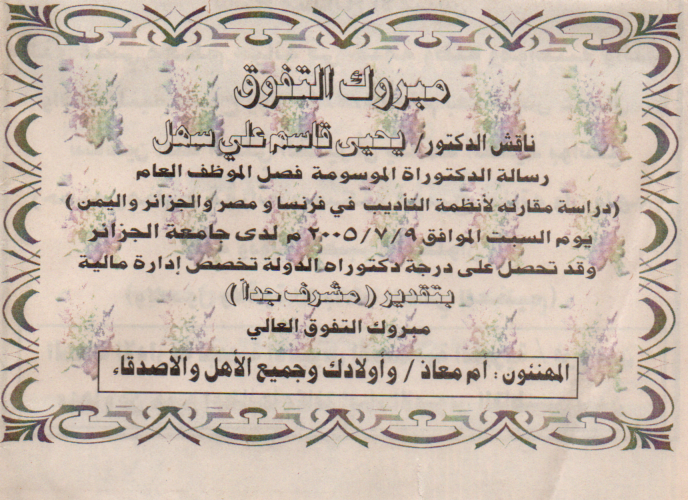 مبروك التفوق
ناقش الدكتور/ يحيى قاسم علي سهل
رسالة الدكتوراة الموسومة فصل الموظف العام
(دراسة مقارنه لأنظمة التأديب في فرنسا و مصر والجزائر واليمن)
يوم السبت الموافق ٢٠٠٥/٧/٩ م لدى جامعة الجزائر
وقد تحصل على درجة دكتوراه الدولة تخصص إدارة مالية
بتقدير (( مشرف جداً ))
مبروك التفوق العالي
المهنئون : أم معاذ / وأولادك وجميع الأهل والاصدقاء